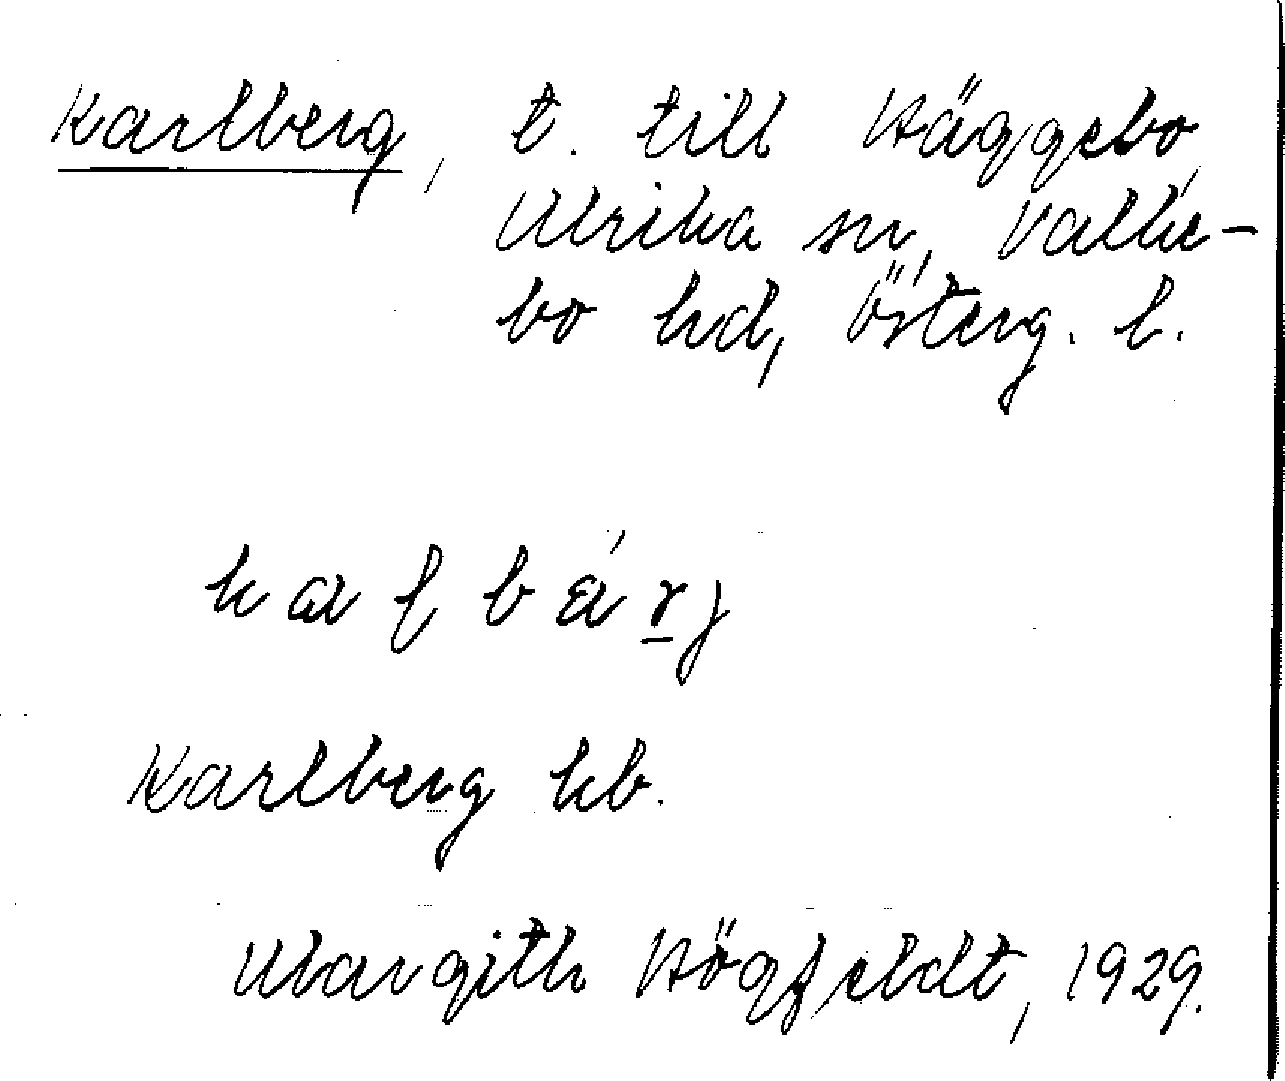 Karlberg, t. till Häggebo,
Ulrika sn, Valke-
bo hd, Österg. l.
kaɭbǽrj
Karlberg kb.
Margith Högfeldt, 1929.